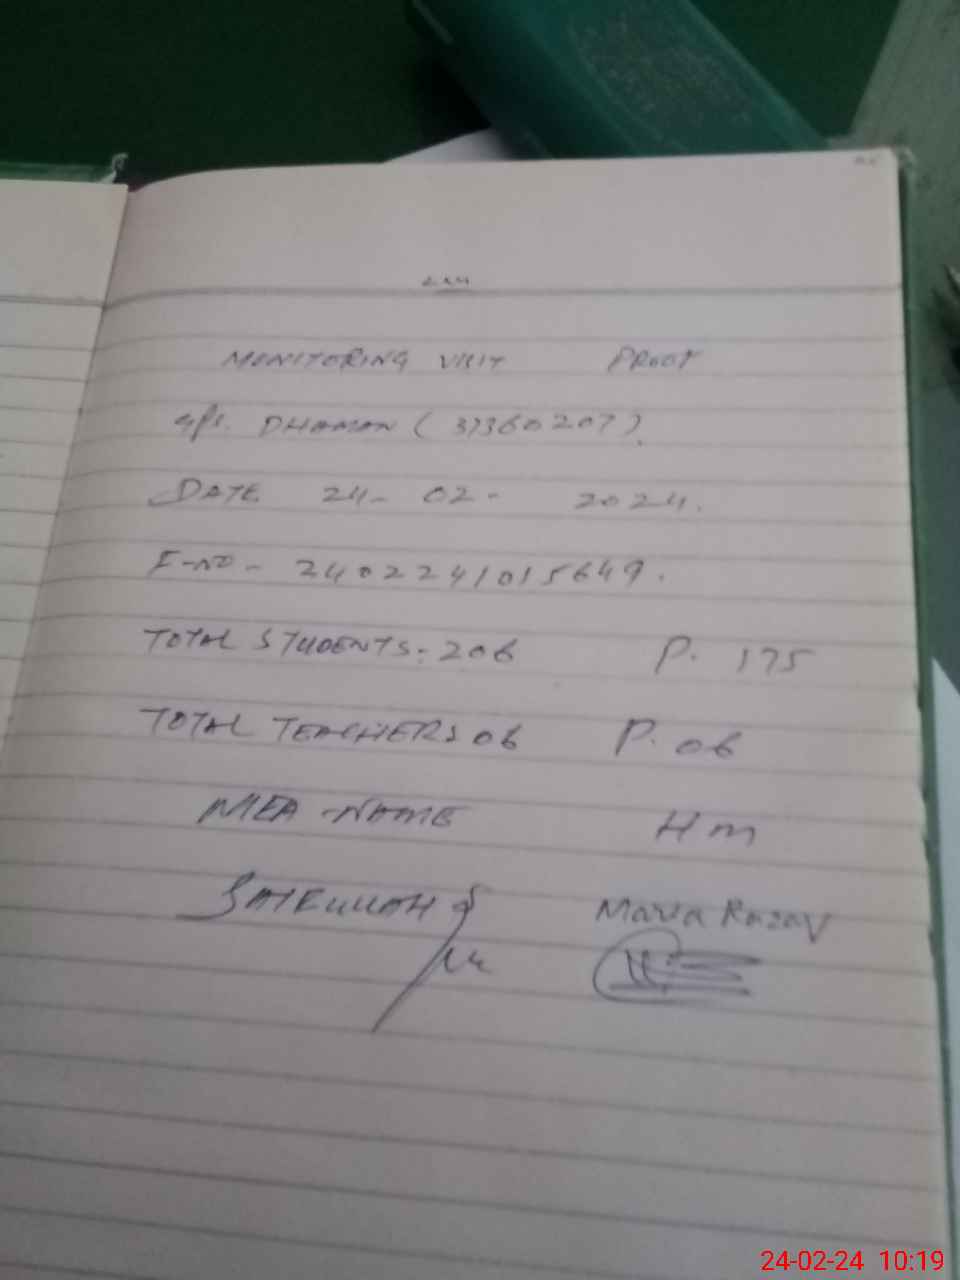 MONITORING VISIT PROOF
GPS. DHAMAN (37360207).
DATE 24-02-2024.
F-NO- 2402241015649.
TOTAL STUDENTS:206 P. 175
TOTAL TEACHERS 06 P. 06
MEA-NAME HM
Maria Razaq
24-02-24 10:19